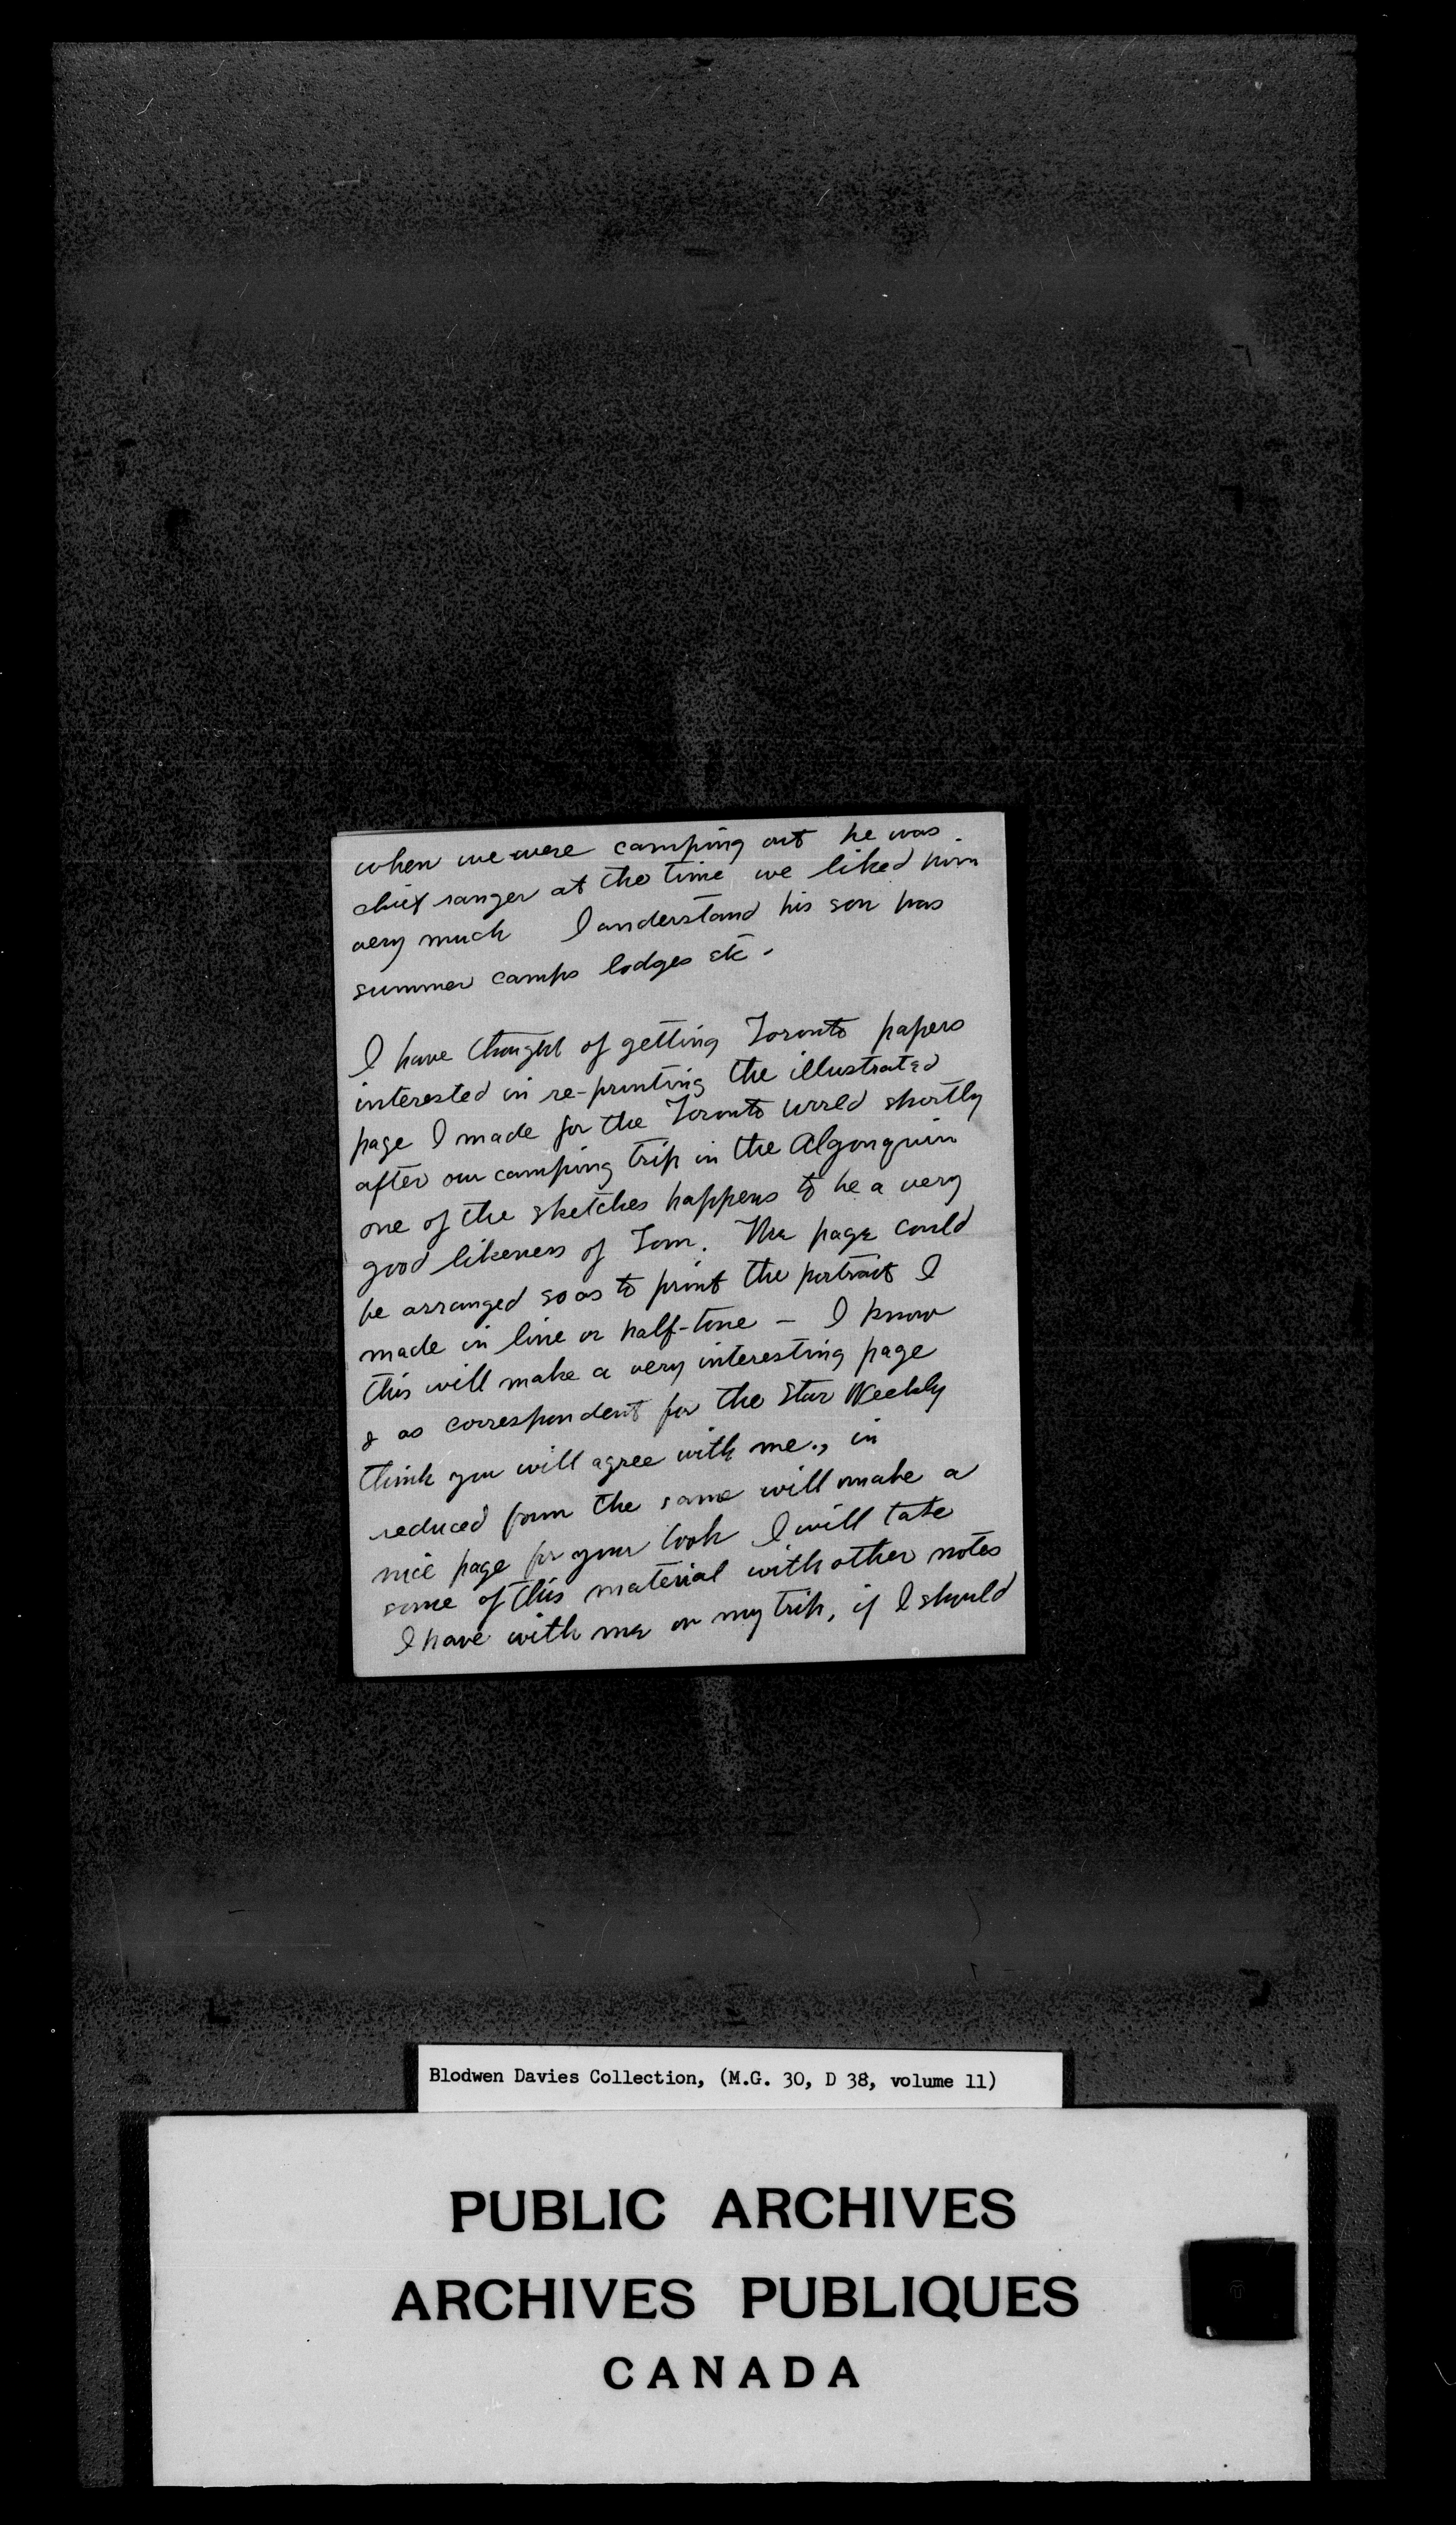 when we were camping out he was
chief ranger at the time we liked him
very much I understand his son has
summer camps lodges etc.
I have thought of getting Toronto papers
interested in re-printing the illustrated
page I made for the Toronto World shortly
after our camping trip in the Algonquin
one of the sketches happens to be a very
good likeness of Tom. The page could
be arranged so as to print the portrait I
made in line or half-tone - I know
this will make a very interesting page
& as correspondent for the Star Weekly
think you will agree with me., in
reduced form the same will make a
nice page for your book I will take
some of this material with other notes
I have with me on my trip, if I should
Blodwen Davies Collection, (M.G. 30, D 38, volume 11)
PUBLIC ARCHIVES
ARCHIVES PUBLIQUES
CANADA